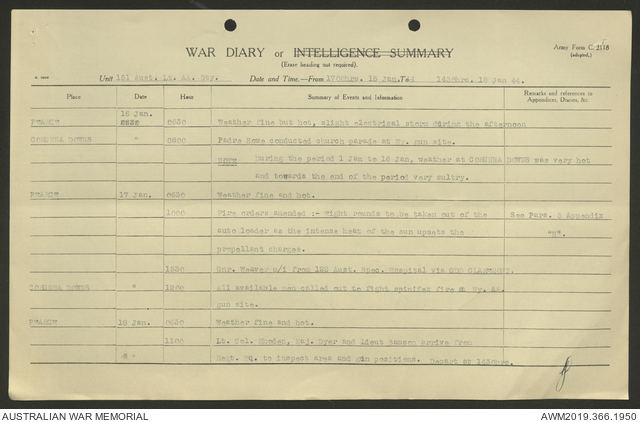 WAR DIARY or INTELLIGENCE SUMMARY
Army Form C. 2118
(Erase heading not required).
(adapted.)
Unit 151 Aust. Lt. AA. Bty. Date and Time.—From 1700hrs. 15 Jan. 1430hrs. 18 Jan 44.
Place Date Hour Summary of Events and Information Remarks and references to Appendices, Diaries, &c.
16 Jan.
PEARCE 0630 Weather fine but hot, slight electrical storm during the afternoon
" 0800 Padre Howe conducted church parade at Hy. gun site.
NOTE During the period 1 Jan to 16 Jan, weather at DOWNS was very hot
and towards the end of the period very sultry.
PEARCE 17 Jan. 0630 Weather fine and hot.
1000 Fire orders amended :- Eight rounds to be taken out of the See Para. 5 Appendix
auto loader as the intense heat of the sun upsets the "H".
propellant charges.
1530 Gnr. Weaver m/i from 122 Aust. Spec. Hospital via GDD CLAREMONT.
DOWNS " 1200 All available men called out to fight spinifex fire at Hy. AA.
gun site.
PEARCE 18 Jan. 0630 Weather fine and hot.
1100 Lt. Col. Rhoden, Maj. Dyer and Lieut arrive from
Regt. HQ. to inspect area and gun positions. Depart at 1430hrs.
AUSTRALIAN WAR MEMORIAL
AWM2019.366.1950